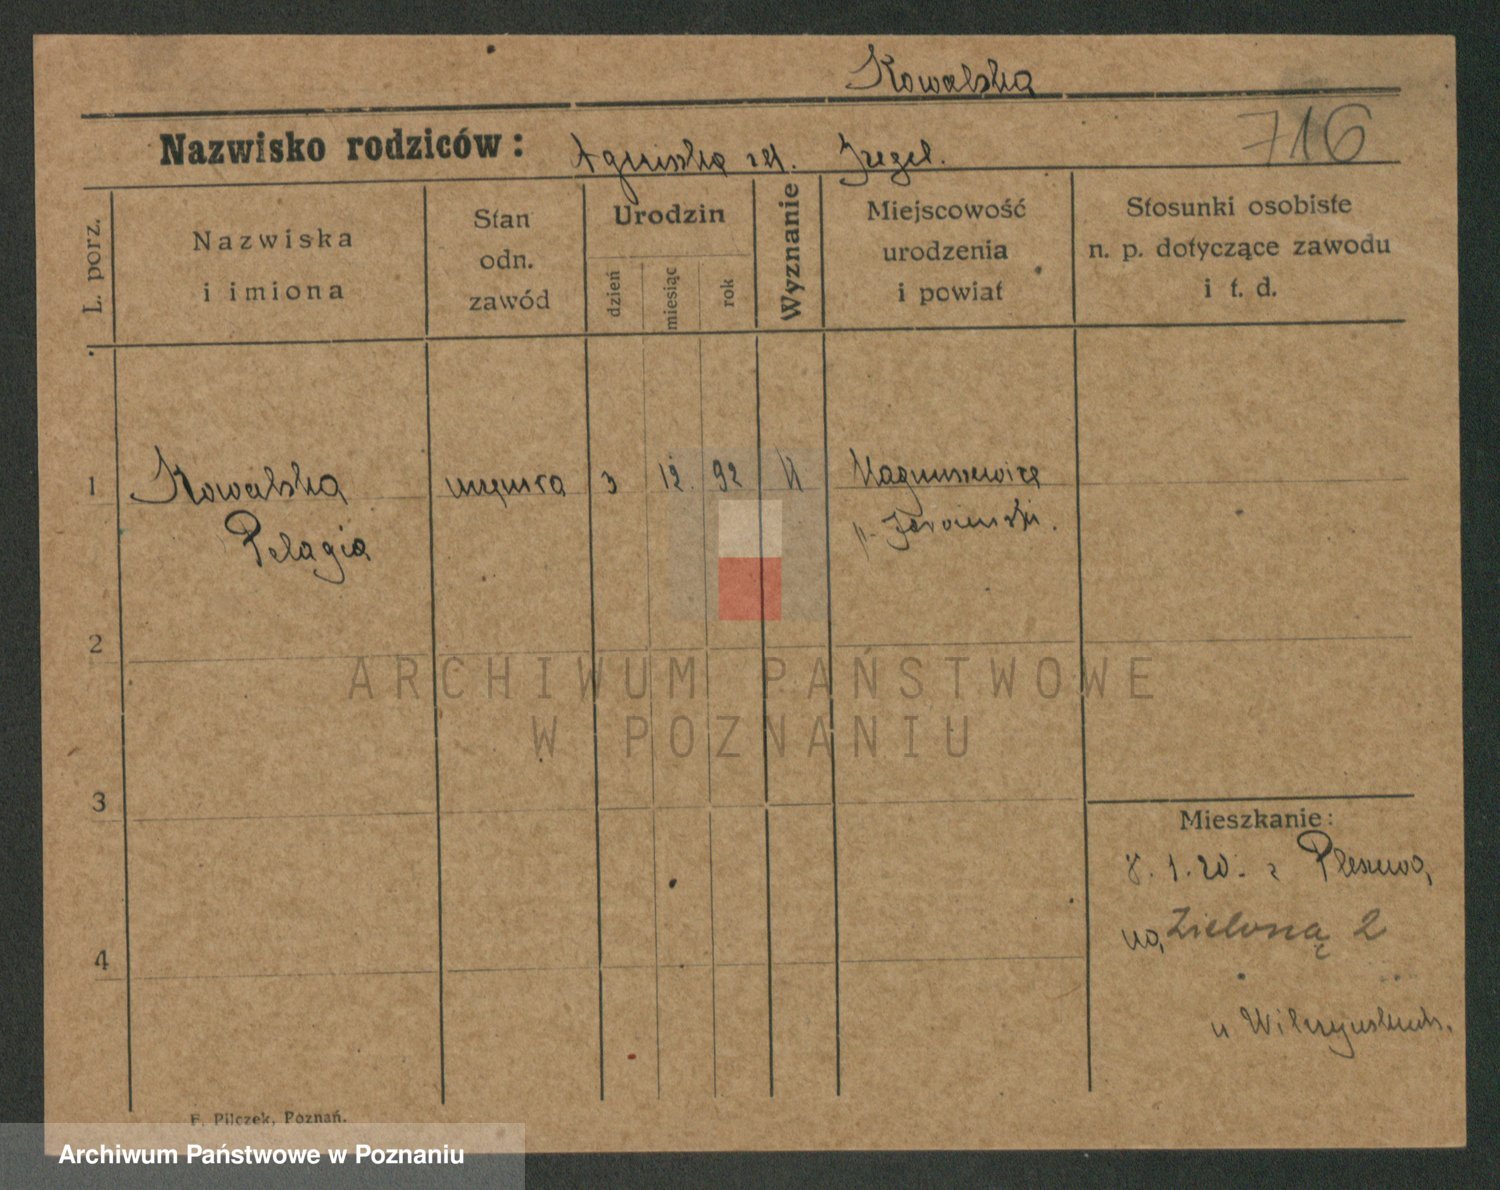 Kowalska
Nazwisko rodziców: Agnieszka
716
L. porz.
Nazwiska
i imiona
Stan
odn.
zawód
Urodzin
dzień
miesiąc
rok
Wyznanie
Miejscowość
urodzenia
i powiat
Stosunki osobiste
n. p. dotyczące zawodu
i t. d.
1
Kowalska
Pelagia
3
12.
92
Magnuszewice
2
3
4
Mieszkanie:
8. 1. 20. z Pleszewa,
na Zieloną 2
u
F. Pilczek, Poznań.
ARCHIWUM PAŃSTWOWE
W POZNANIU
Archiwum Państwowe w Poznaniu